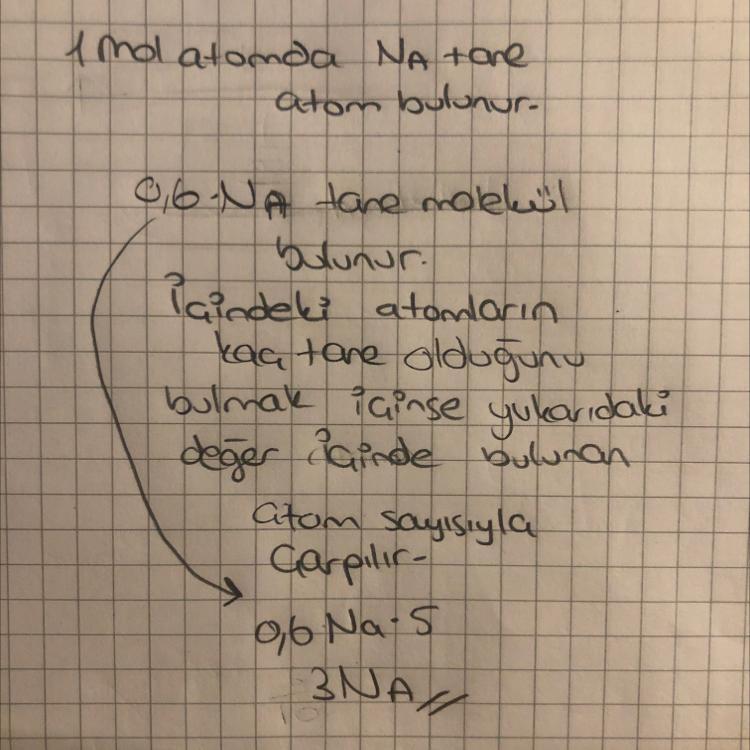 1 mol atomda NA tane
atom bulunur.
0,6·NA tane molekül
bulunur.
İçindeki atomların
kaç tane olduğunu
bulmak içinse yukarıdaki
değer içinde bulunan
atom sayısıyla
çarpılır.
0,6 Na·5
3NA